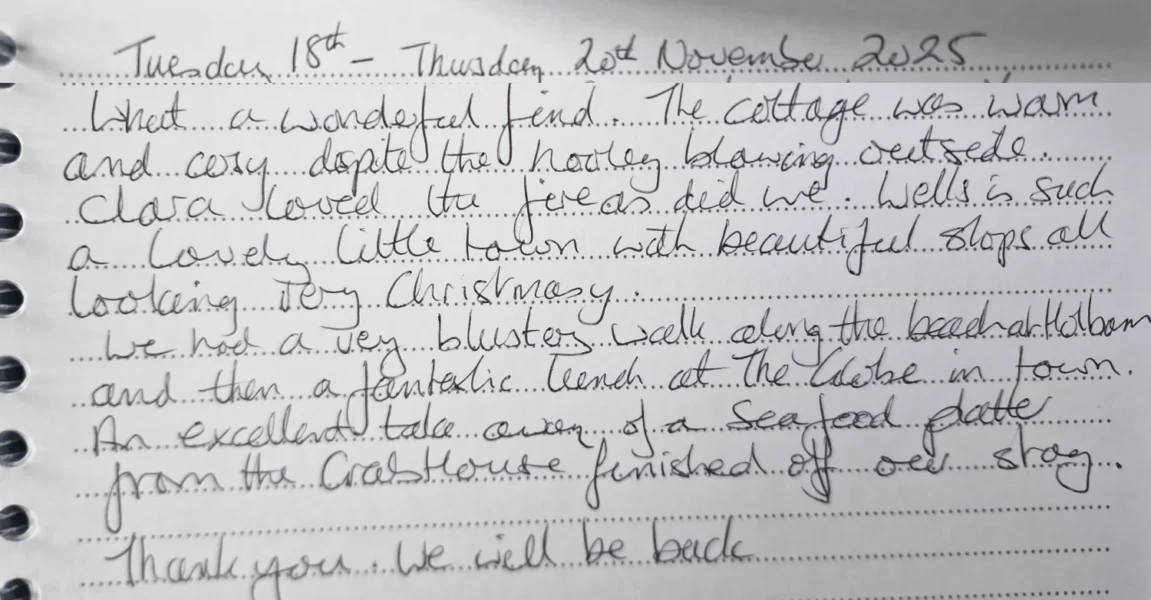 Tuesday 18th - Thursday 20th November 2025
What a wonderful find. The cottage was warm
and cosy dispite the hooley blowing outside.
Clara loved the fire as did we. Wells is such
a lovely little town with beautiful shops all
looking very Christmasy.
We had a very blustery walk along the beach at Holbam
and then a fantastic lunch at The Globe in town.
An excellent take away of a Seafood platte
from the Crab House finished off our stay.
Thank you. We will be back